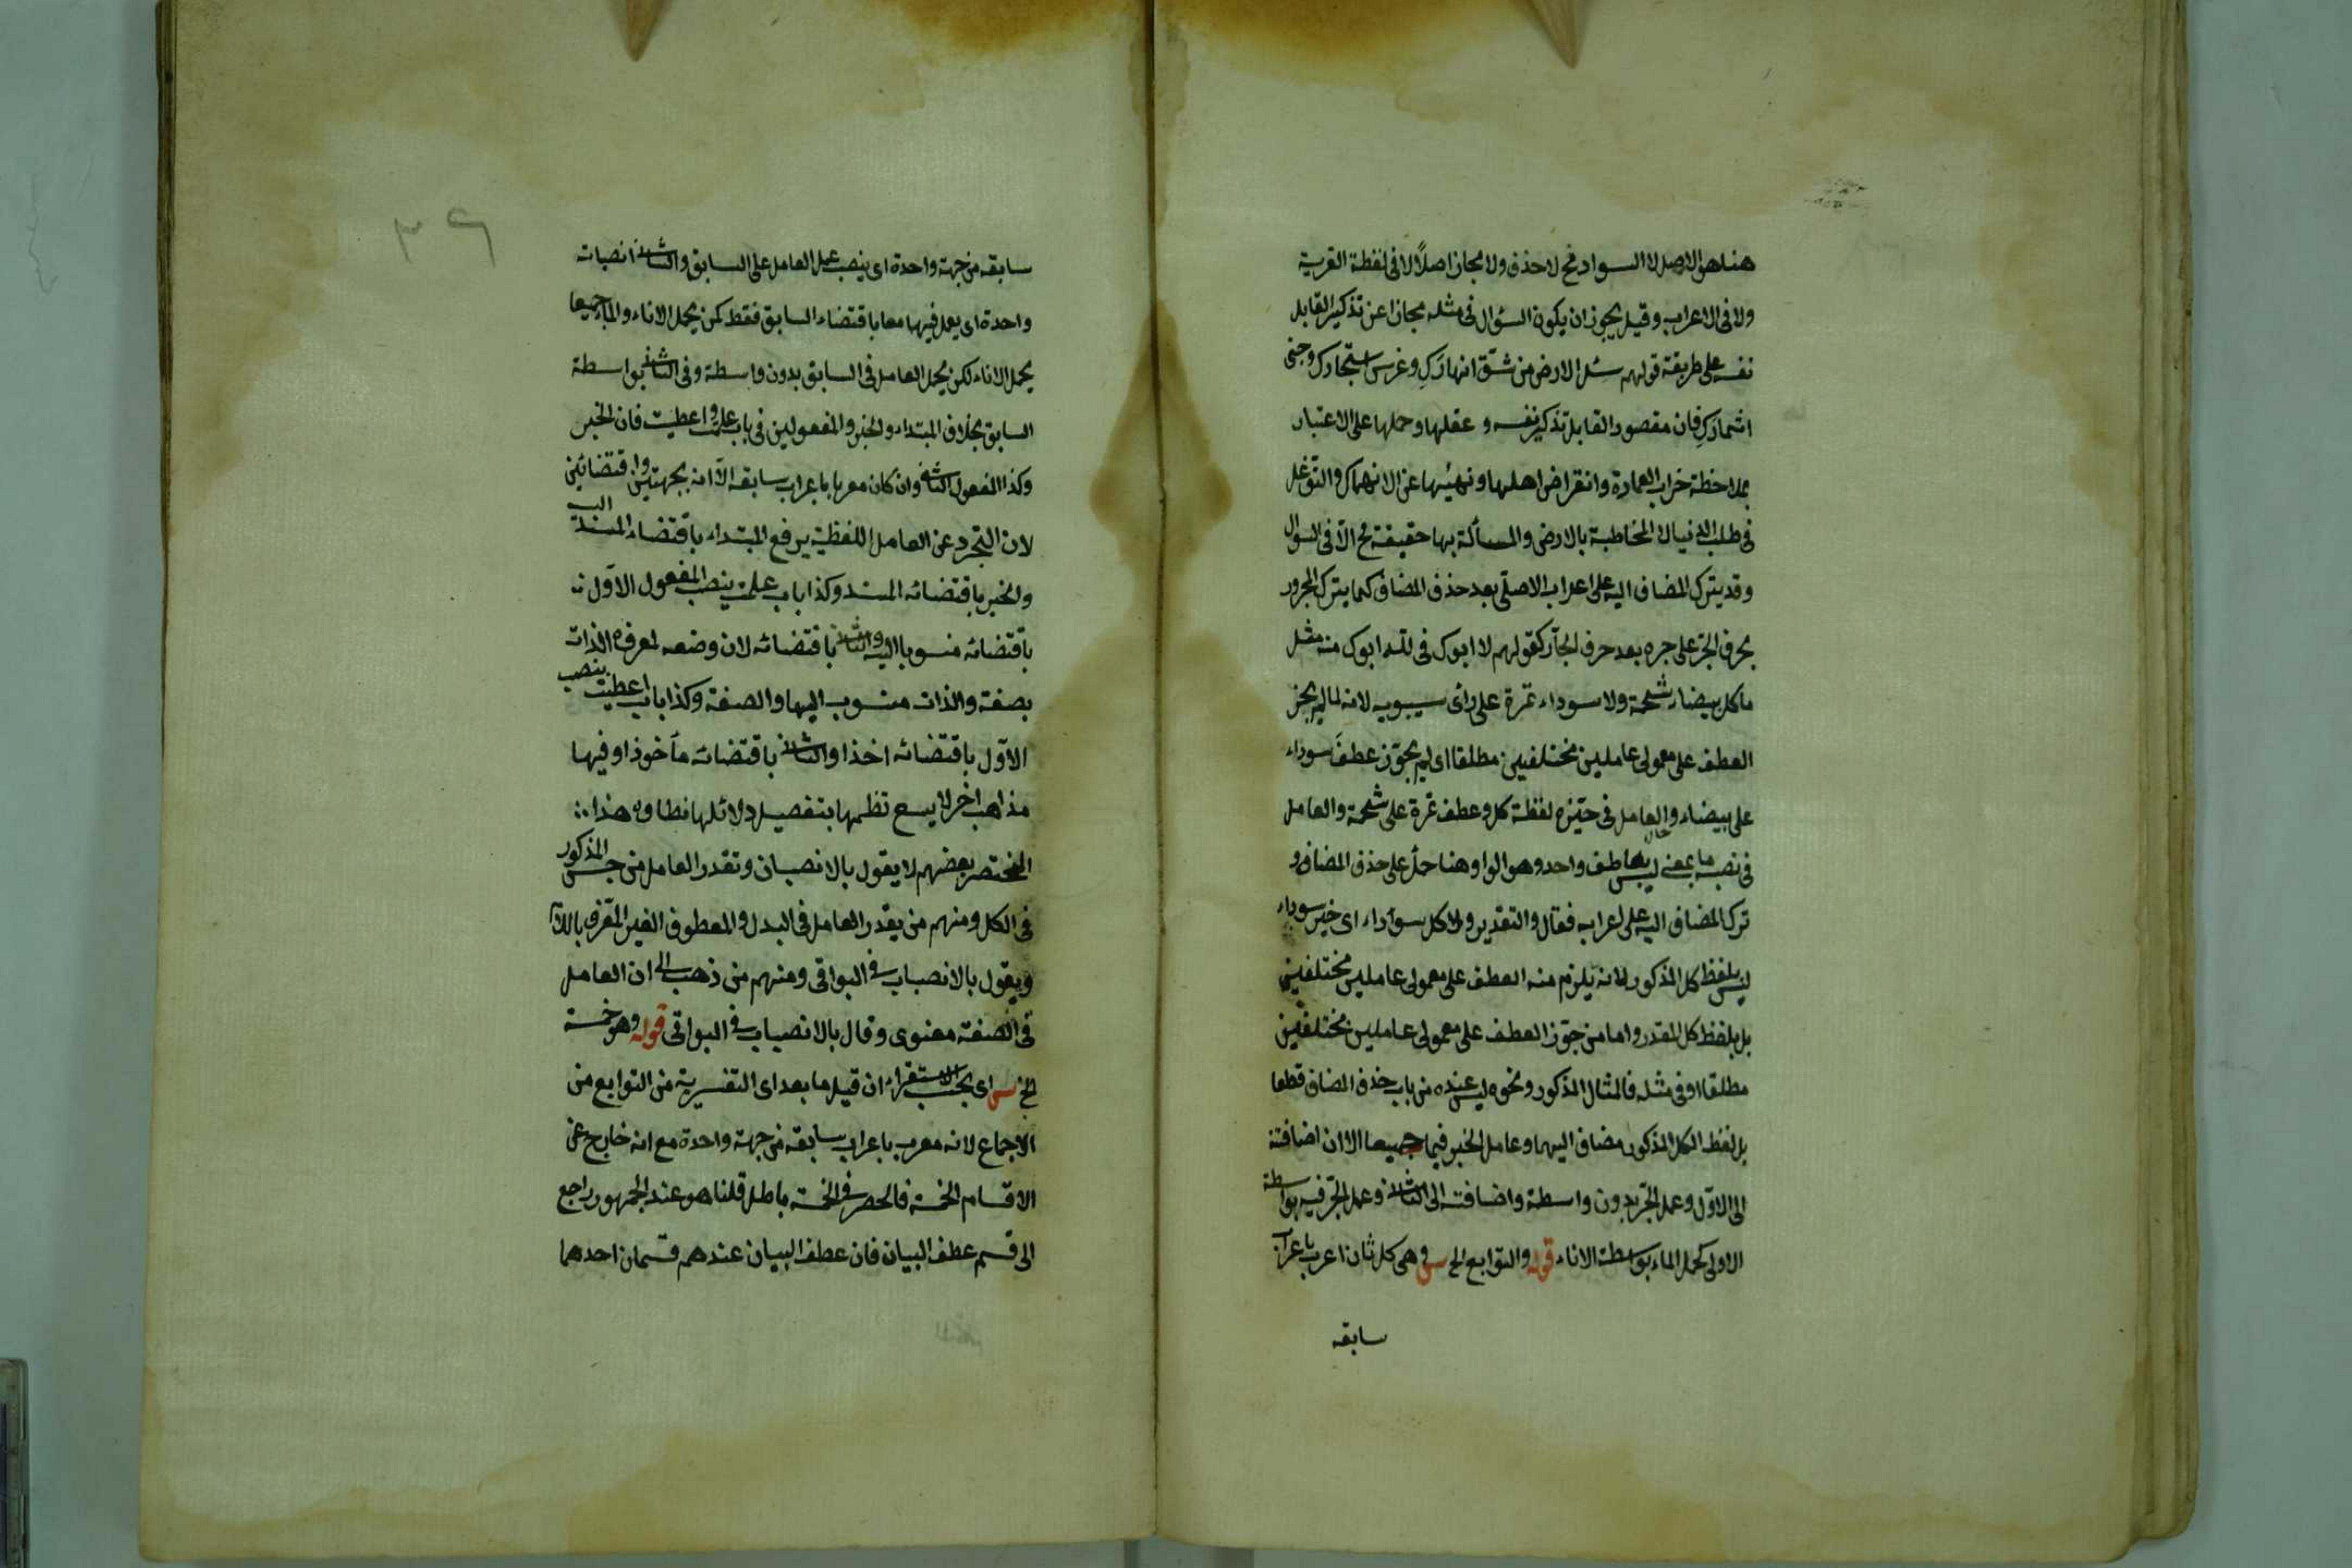 هنا هو الاصل لا السواد فح لا حذف ولا مجاز اصلاً لا فى لفظة القرية
ولا فى الاعراب وقيل يجوز ان يكون السؤال فى مثله مجازا عن تذكير القابل
نفسه على طريقة قولهم سئل الارض من شقّ انهارَكِ وغرس اشجارك وجنى
اثمارَكِ فان مقصود القابل تذكير نفسه و عقلها وحملها على الاعتبار
بملاحظة خراب العمارة وانقراض اهلها ونهيها عن الانهماك والتوغل
فى طلب الدنيا لا المخاطبة بالارض والمسألة بها حقيقة فح الآ فى السؤال
وقد يترك المضاف اليه على اعرابه الاصلّى بعد حذف المضاف كما يترك المجرور
بحرف الجرّ على جره بعد حرف الجآر كقولهم لا ابوك فى لله ابوك منه مثل
ما كل بيضاء شحمة ولا سوداء تمرة على رأى سيبويه لانه لما لم يجز
العطف على معمولى عاملين مختلفين مطلقا اى لم يجوّز عطف سوداء
على بيضاء والعامل فى حيّزه لفظة كل وعطف تمرة على شحمة والعامل
فى نصبه ما بمعنى ليس بعاطف واحد وهو الواو هنا حمل على حذف المضاف و
ترك المضاف اليه على اعرابه فقال والتقدير ولا كل سوداء اى خير سوداء
ليس بلفظ كل المذكور لانه يلزم منه العطف على معمولى عاملين مختلفين
بل بلفظ كل المقدر واما من جوّز العطف على معمولى عاملين مختلفين
مطلقا او فى مثله فالمثال المذكور ونحوه ليس عنده من باب حذف المضاف قطعا
بل لفظ الكل المذكور مضاف اليهما وعامل الخبر فيهما جميعا الا ان اضافته
الى الاوّل وعمل الجرّ بدون واسطة واضافته الى الثانى وعمل الجرّ فيه بواسطة
الاولى كحمل الماء بواسطة الاناء قوله والتوابع الخ س وهى كل ثان اعرب باعراب
سابقه
٣٩
سابقه من جهة واحدة اى ينصب عمل العامل على السابق والثانى انصبابة
واحدة اى يعمل فيهما معا باقتضاء السابق فقط كمن يحمل الاناء والماء جميعا
يحمل الاناء لكن يحمل العامل فى السابق بدون واسطة وفى الثانى بواسطة
السابق بخلاف المبتداء والخبر والمفعولين فى باب علمت واعطيت فان الخبر
وكذا المفعول الثانى وان كان معربا باعراب سابقه الآ انه بجهتين واقتضائين
لان التجرد عن العامل اللفظية يرفع المبتداء باقتضاء المسند اليه
والخبر باقتضائه المسند وكذا باب علمت ينصب المفعول الاوّل
باقتضائه منسوبا اليه والثانى باقتضائه لان وضعه لمعرفة الذات
بصفة والذات منسوب اليها والصفة وكذا باب اعطيت ينصب
الاوّل باقتضائه اخذا والثانى باقتضائه مأخوذا وفيها
مذاهب اخر لا يسع نظمها بتفصيل دلائلها نطاق هذا
المختصر بعضهم لا يقول بالانصباب وتقدر العامل من جنس المذكور
فى الكل ومنهم من يقدر العامل فى البدل والمعطوف الغير المعرف باللام
ويقول بالانصباب فى البواقى ومنهم من ذهب الى ان العامل
فى الصفة معنوى وقال بالانصباب فى البواقى قوله وهو خمسة
الخ س اى بحسب الاستقراء ان قيل ما بعد اى التفسيرية من التوابع من
الاجماع لانه معرب باعراب سابقه من جهة واحدة مع انه خارج عن
الاقسام الخمسة فالحصر فى الخمسة باطل قلنا هو عند الجمهور راجع
الى قسم عطف البيان فان عطف البيان عندهم قسمان احدهما